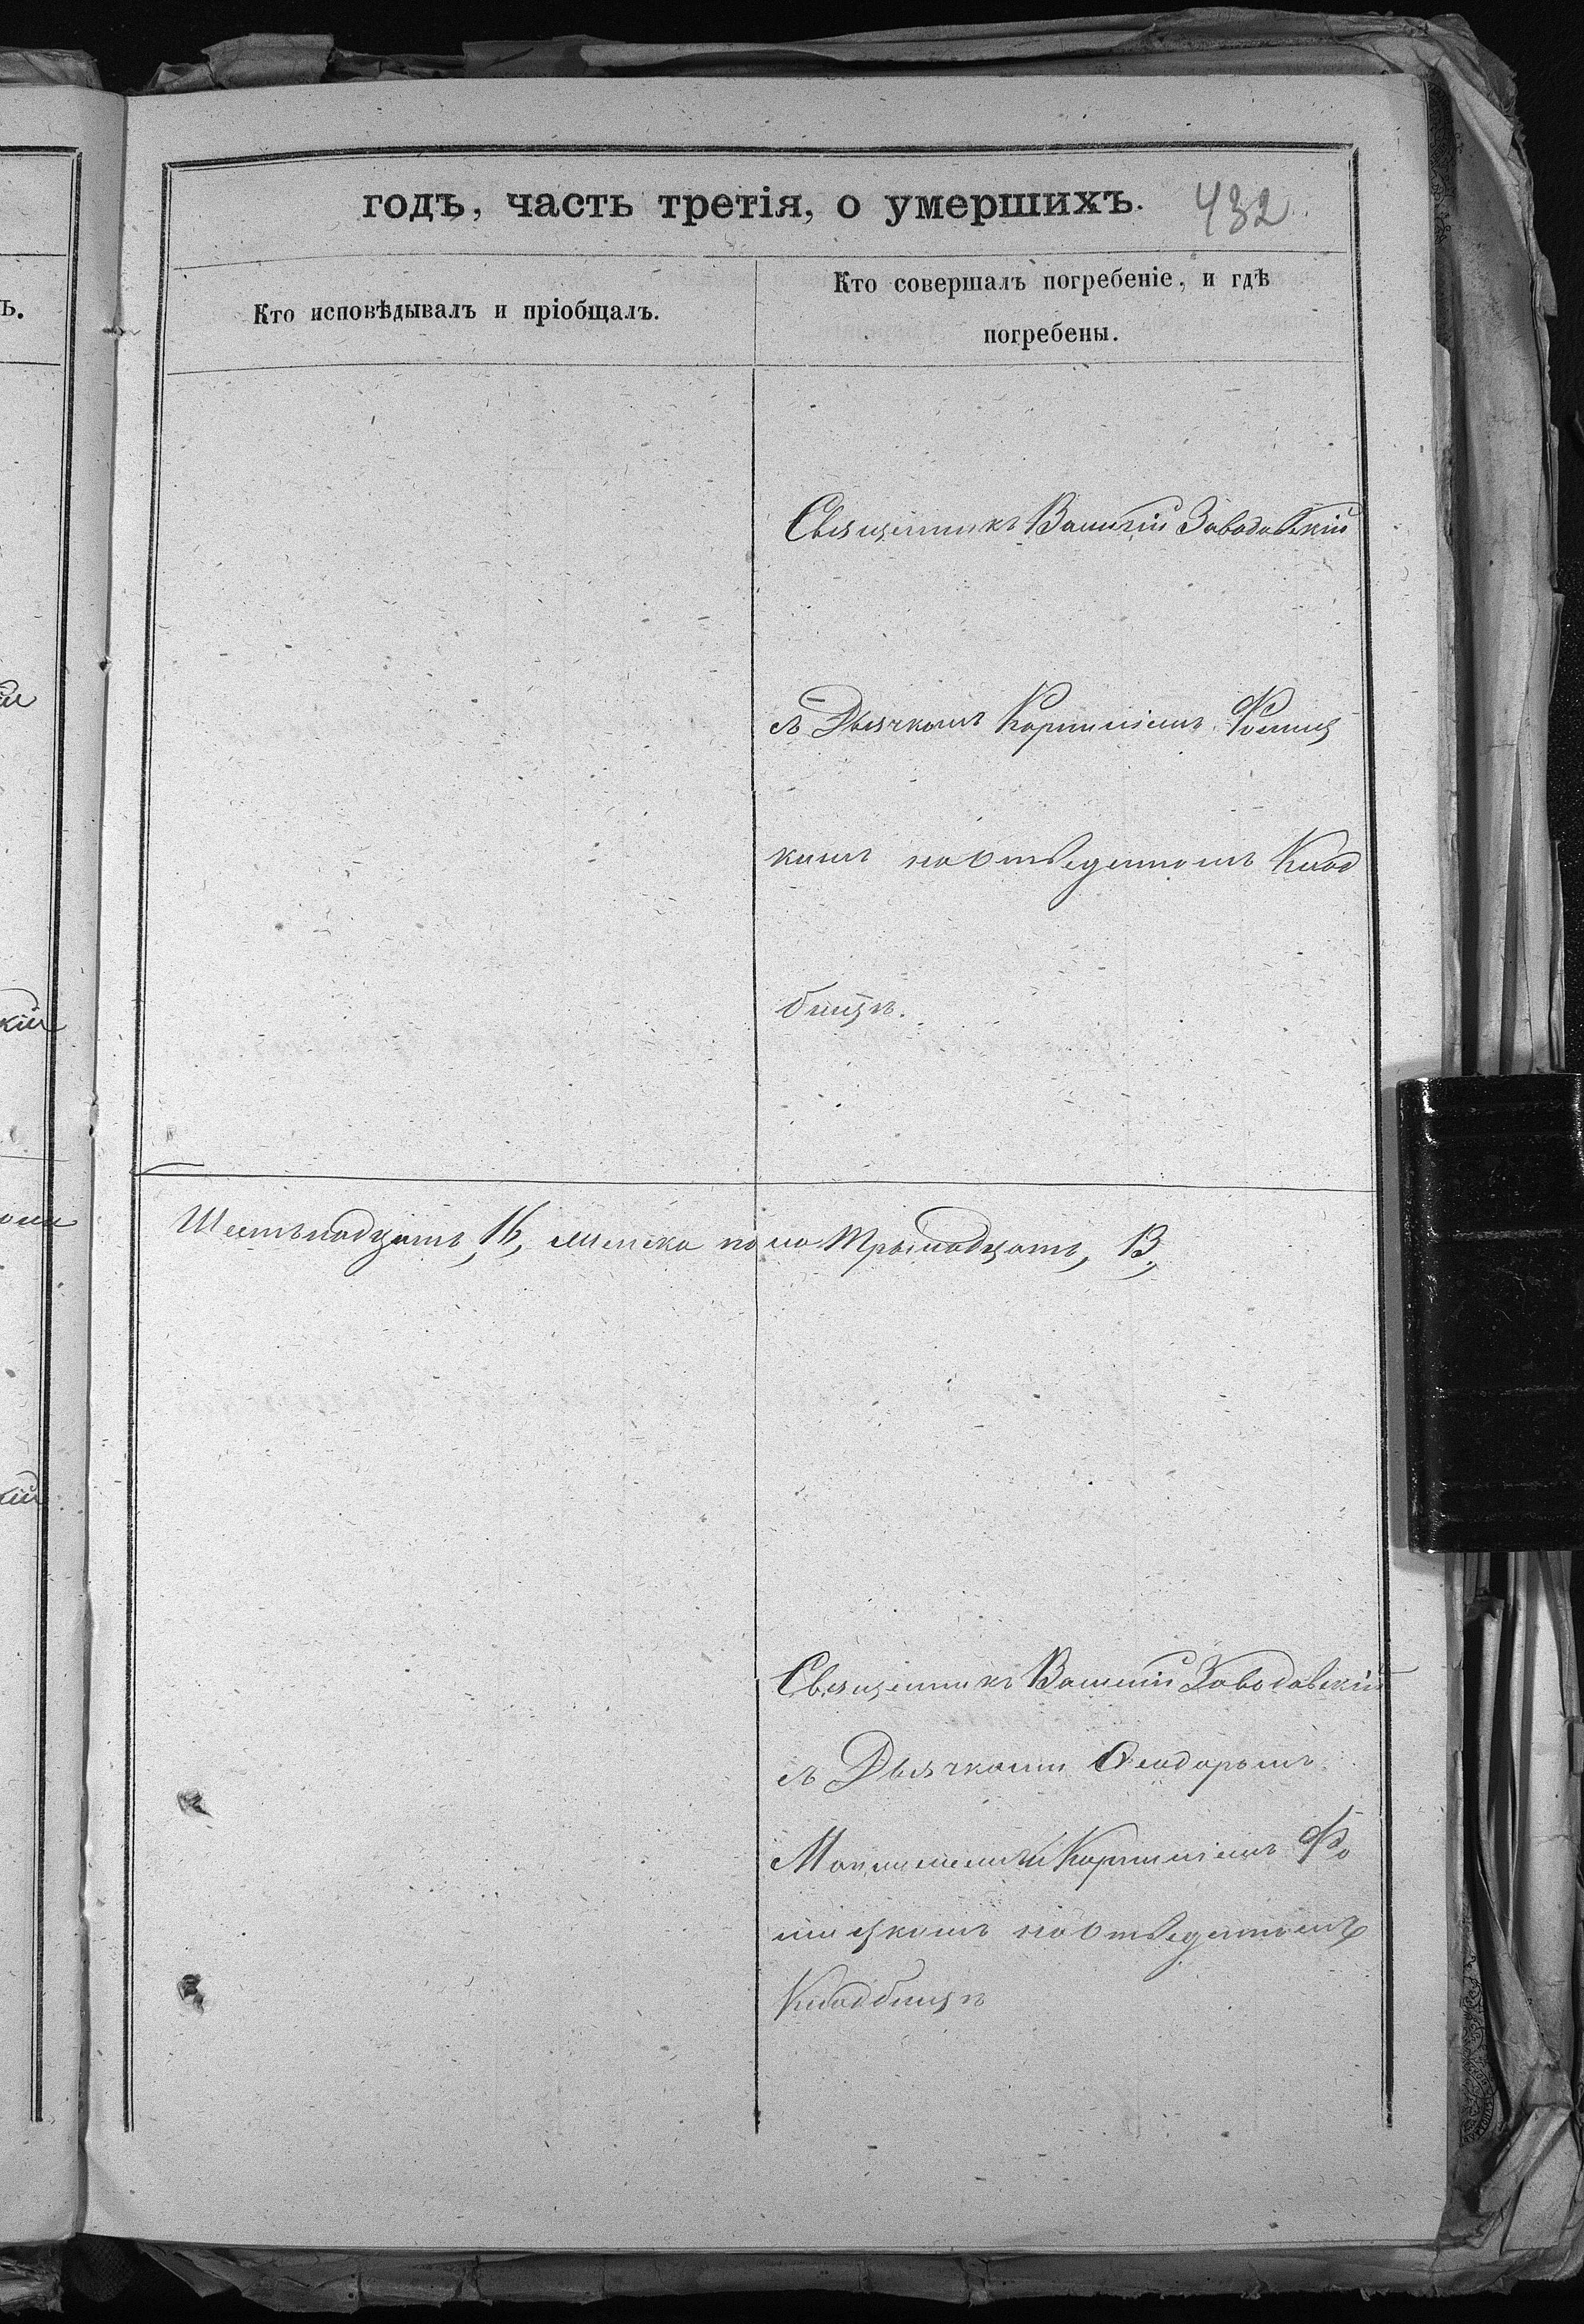 годъ, часть третія, о умершихъ. 432
Кто исповѣдывалъ и пріобщалъ.
Кто совершалъ погребеніе, и гдѣ
погребены.
Священникъ Василій Заводовскій
съ Дьячкомъ Корниліемъ Фомиц
кимъ на Отведенномъ Клад
бищѣ.
Шестьнадцать, 16, женска пола Трынадцать, 13,
Священникъ Василій Заводовскій
съ Дьячкоми Ѳеодоромъ
и Корниліемъ Фо
мицкимъ на Отведенномъ
Кладбищѣ
ъ.
кій